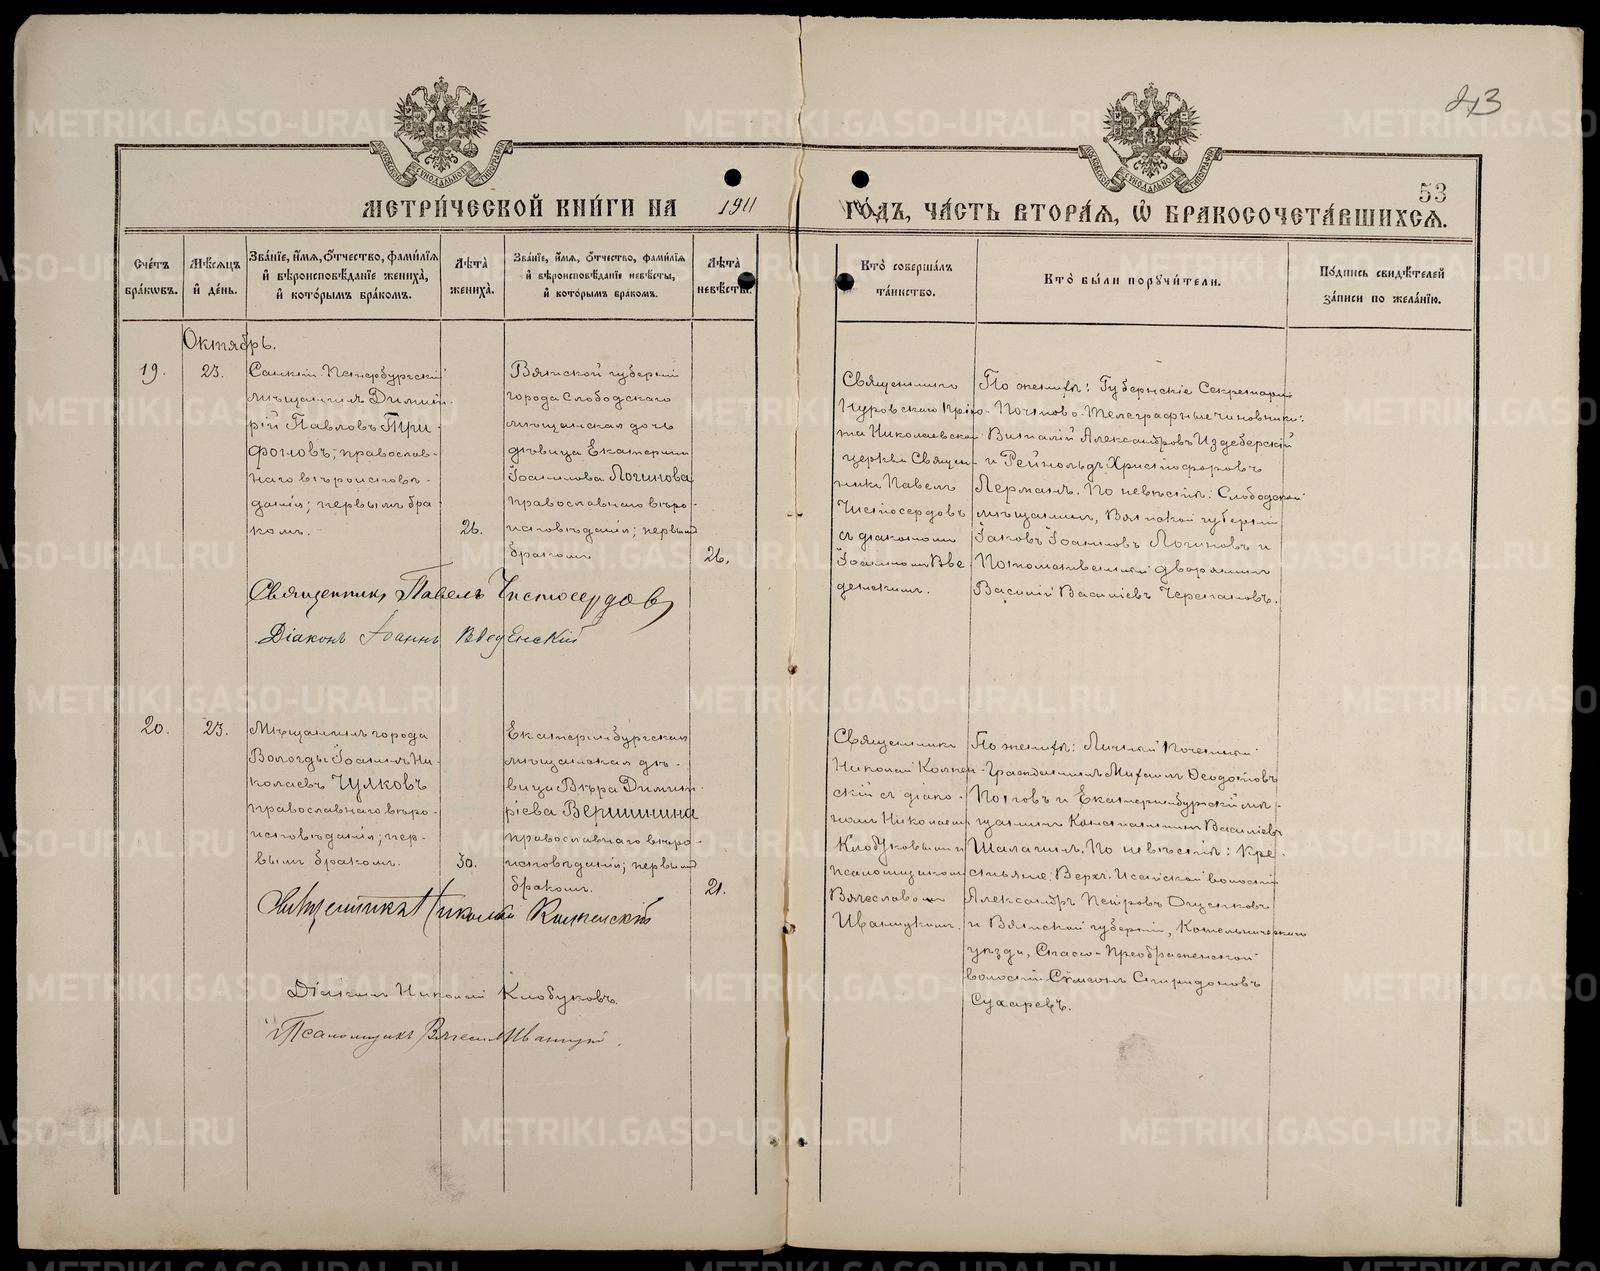 METRIKI.GASO-URAL.RU
53
МЕТРИ́ЧЕСКОЙ КНИ́ГИ НА 1911 ГО́ДЪ, ЧА́СТЬ ВТОРА́Я, Ѡ БРАКОСОЧЕТА́ВШИХСЯ.
Сче́тъ бра́кѡвъ.
Мѣ́сяцъ и де́нь.
Зва́нїе, и́мя, ѻ́тчество, фами́лїя и вѣроисповѣ́данїе жениха̀, и кото́рымъ бра́комъ.
Лѣ́та жениха̀.
Зва́нїе, и́мя, ѻ́тчество, фами́лїя и вѣроисповѣ́данїе невѣ́сты, и кото́рымъ бракомъ.
Лѣ́та невѣ́сты.
Кто̀ соверша́лъ та́инство.
Кто̀ бы́ли порꙋчи́тели.
По́дпись свидѣ́телей за́писи по жела́нїю.
Октябрь.
19.
23.
Санктъ Петербургскій
мѣщанинъ Димит-
рій Павловъ Три-
фоновъ, православ-
наго вѣроисповѣ-
данія; первымъ бра-
комъ.
26.
Вятской губерніи
города Слободскаго
мѣщанская дочь
дѣвица Екатерина
Іоаннова Логинова
православнаго вѣро-
исповѣданія; первымъ
бракомъ
26.
Священники
Нуровскаго Прію-
та Николаевской
церкви Священ-
никъ Павелъ
Чистосердовъ
съ діакономъ
Іоанномъ Вве-
денскимъ.
По женихѣ: Губернскіе Секретари
Почтово-Телеграфные чиновники:
Виталій Александровъ Издеберскій
и Рейнольдъ Христофоровъ
Лерманъ. По невѣстѣ: Слободской
мѣщанинъ, Вятской губерніи
Іаковъ Іоанновъ Логиновъ и
Потомственный дворянинъ
Василій Васильевъ Черепановъ.
Священникъ Павелъ Чистосердовъ
Діаконъ Іоаннъ Введенскій
20.
23.
Мѣщанинъ города
Вологды Іоаннъ Ни-
колаевъ Чулковъ
православнаго вѣро-
исповѣданія; пер-
вымъ бракомъ.
30.
Екатеринбургская
мѣщанская дѣ-
вица Вѣра Димит-
ріева Вершинина
православнаго вѣро-
исповѣданія; первымъ
бракомъ.
21.
Священники
Николай
скій съ діако-
номъ Николаемъ
Клобуковымъ и
псаломщикомъ
Вячеславомъ
Иваницкимъ.
По женихѣ: Личный почетный
Гражданинъ Михаилъ Ѳеодотовъ
Постовъ и Екатеринбургскій мѣ-
щанинъ Константинъ Васильевъ
Шалагинъ. По невѣстѣ: Кре-
стьяне: Верх-Исетской волости
Александръ Петровъ Ощепковъ
и Вятской губерніи, Котельническаго
уѣзда, Спасо-Преображенской
волости Симеонъ Спиридоновъ
Сухаревъ.
Священникъ Николай
Діаконъ Николай Клобуковъ.
Псаломщикъ Вячеслав Иваницкій.